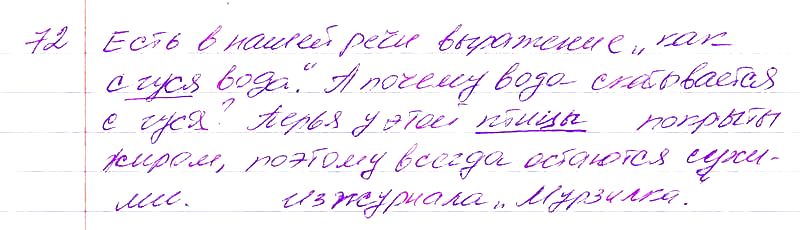 72 Есть в нашей речи выражение „как
с гуся вода“. А почему вода скатывается
с гуся? Перья у этой птицы покрыты
жиром, поэтому всегда остаются сухи-
ми. Из журнала „Мурзилка“.